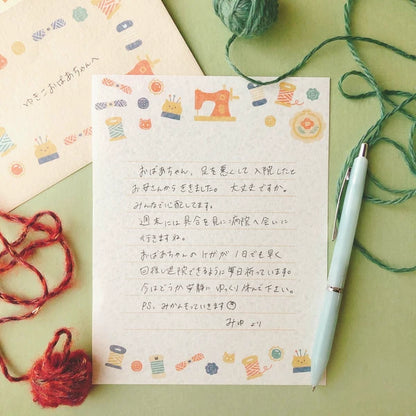 ゆきこおばあちゃんへ
おばあちゃん、足を悪くして入院したと
お母さんからききました。大丈夫ですか。
みんな心配してます。
週末には具合を見に病院へ会いに
行きますね。
おばあちゃんのケガが1日でも早く
回復し退院できるように毎日祈っています。
今はどうか安静にゆっくり休んで下さい。
P.S. みかんもっていきます
みゆより